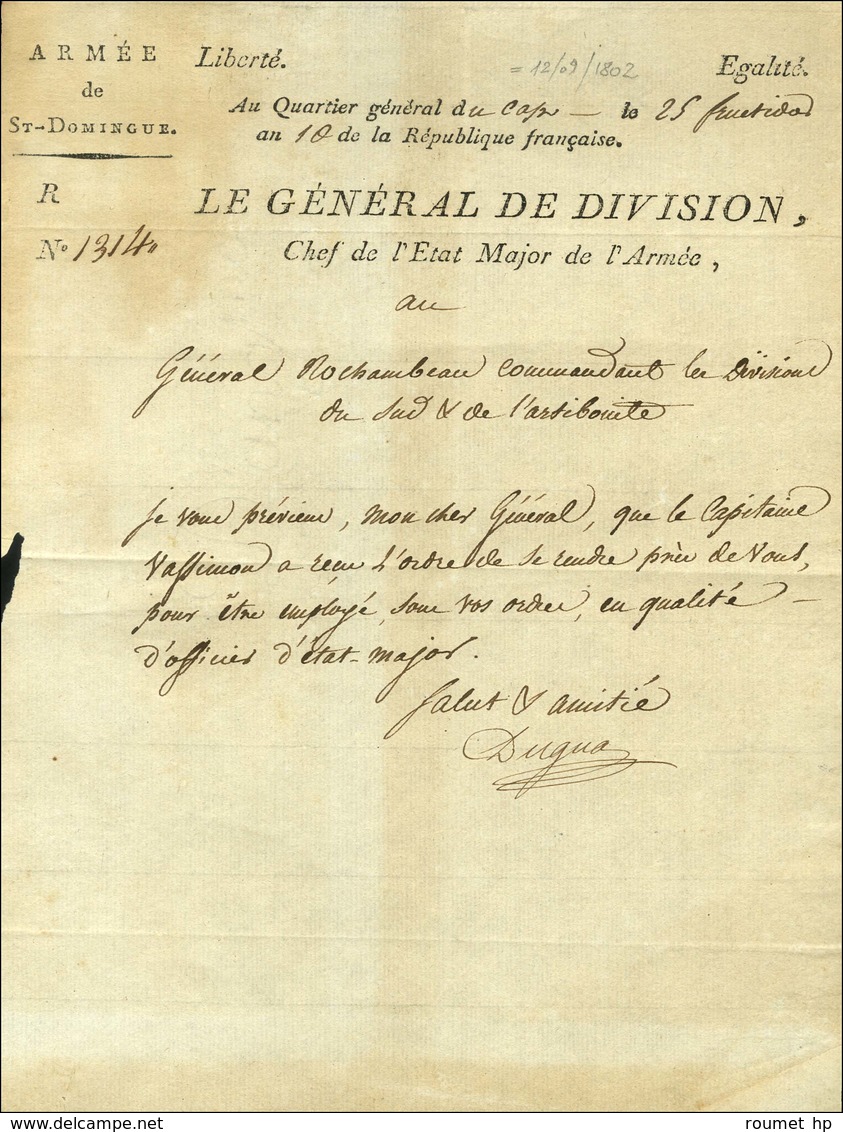 ARMÉE
de
ST-DOMINGUE.
Liberté.
= 12/09/1802
Egalité.
Au Quartier général du Cap — le 25 fructidor
an 10 de la République française.
R
N° 1314
LE GÉNÉRAL DE DIVISION,
Chef de l'Etat Major de l'Armée,
au
Général Rochambeau commandant les Divisions
du Sud & de l'artibonite
je vous préviens, mon cher Général, que le Capitaine
Vassimon a reçu l'ordre de se rendre près de vous,
pour être employé, sous vos ordres, en qualité —
d'officier d'état-major.
Salut & amitié
Dugua
delcampe.net
roumet hp